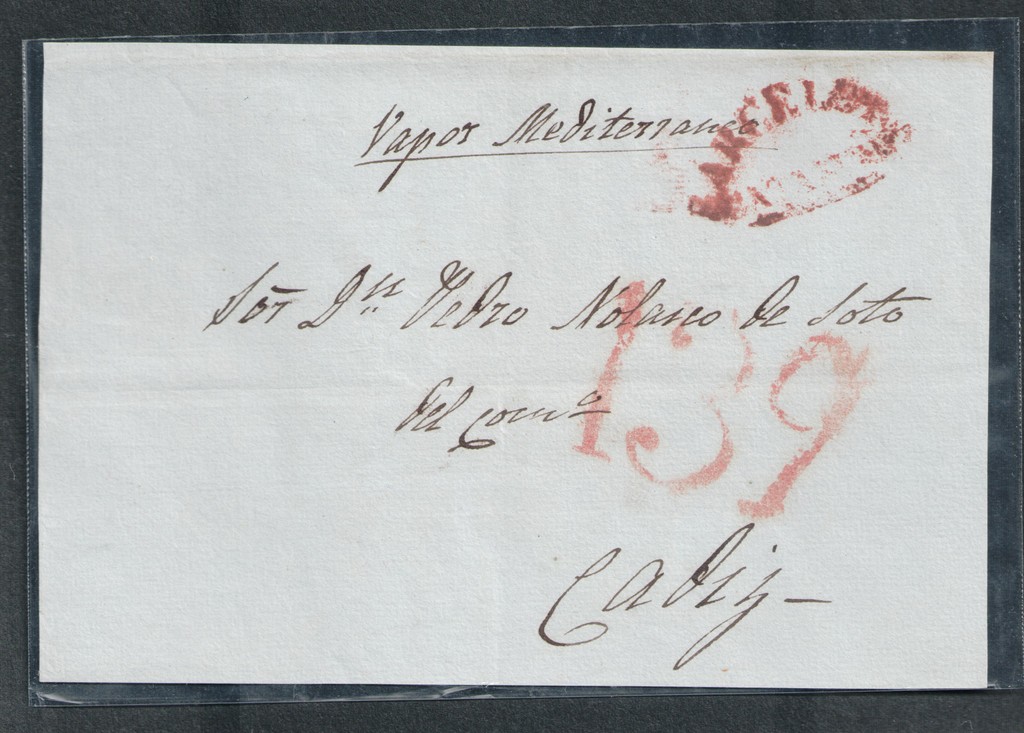 Vapor Mediterraneo
BARCELONA
Sōr Dⁿ Pedro Nolasco de Soto
139
del Comº
Cadiz